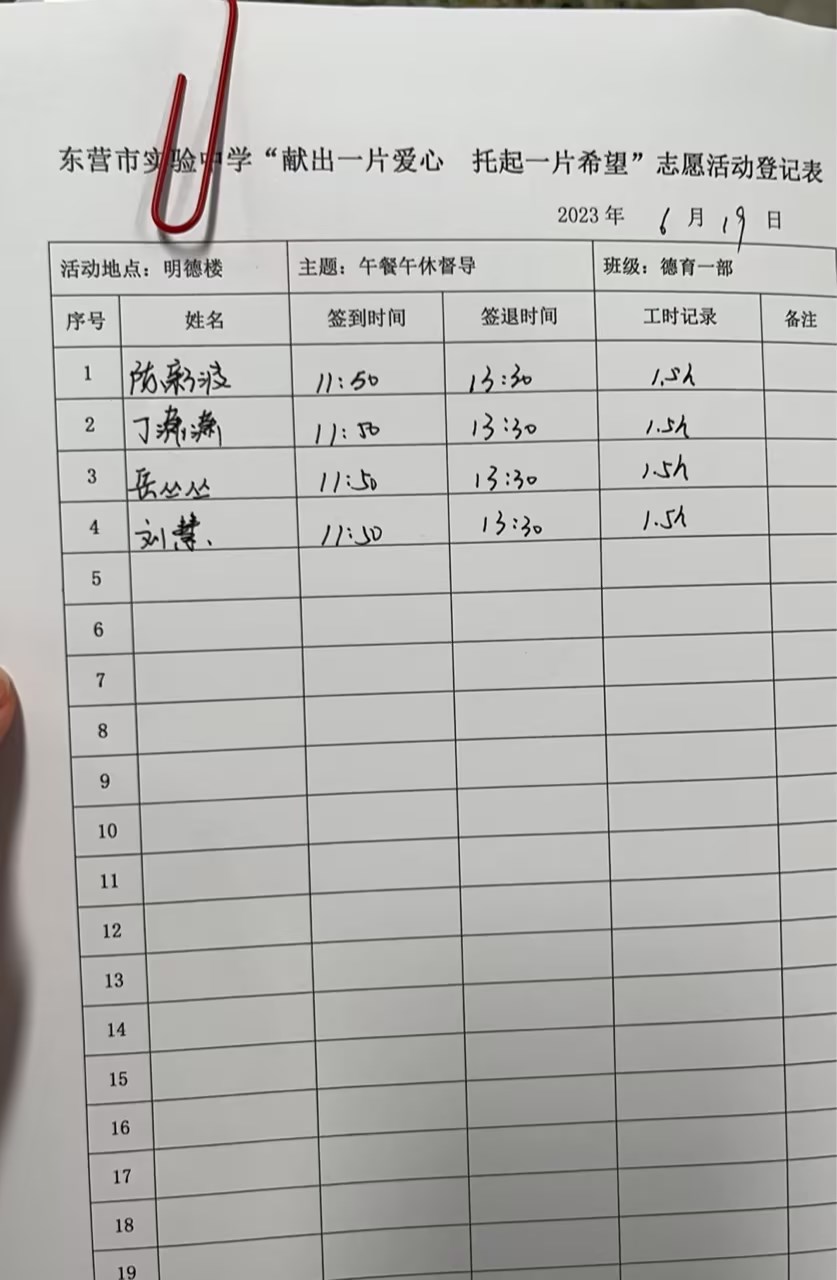 东营市实验中学“献出一片爱心 托起一片希望”志愿活动登记表
2023 年 6 月 19 日
活动地点：明德楼 主题：午餐午休督导 班级：德育一部
序号 姓名 签到时间 签退时间 工时记录 备注
1 陈新波 11:50 13:30 1.5h
2 丁潇潇 11:50 13:30 1.5h
3 岳丛丛 11:50 13:30 1.5h
4 刘慧 11:50 13:30 1.5h
5
6
7
8
9
10
11
12
13
14
15
16
17
18
19